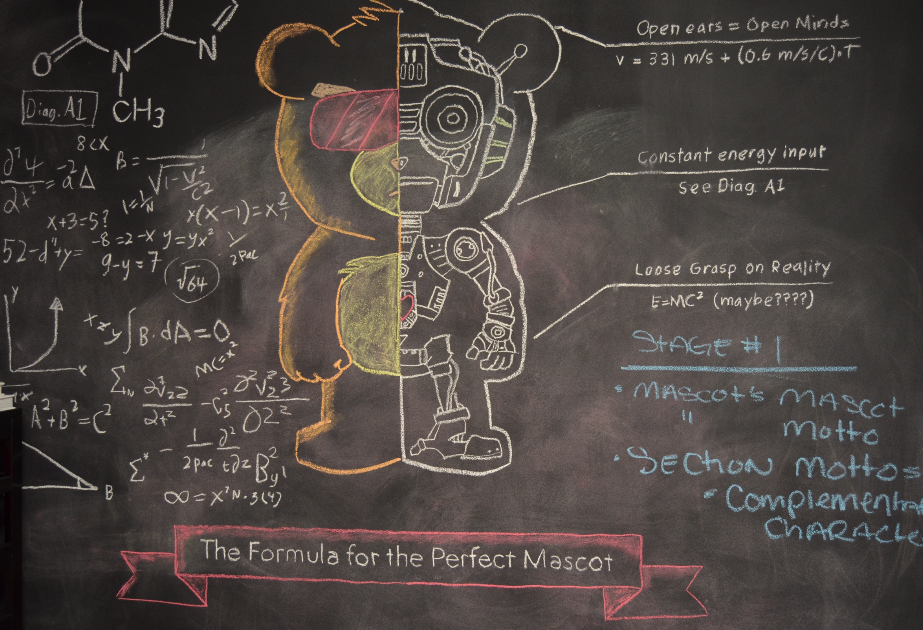 O
N
N
CH3
Diag. A1
8<x
B = 1/√1-V²/C²
1=1/N
x+3=5?
x(x-1)=x²/1
52-d"+y=
-8=2-x y=yx²
9-y=7
Y/2pac
√64
Y
X
∫B·dA=0
MC=x²
A²+B²=C²
B
∞=x²N·3(4)
Open ears = Open Minds
V = 331 m/s + (0.6 m/s/C)·T
Constant energy input
See Diag. A1
Loose Grasp on Reality
E=MC² (maybe????)
STAGE #1
· MASCOT'S MASCOT
" MOTTO
· SECTION MOTTO =
· COMPLEMENTA
CHARACTE
The Formula for the Perfect Mascot